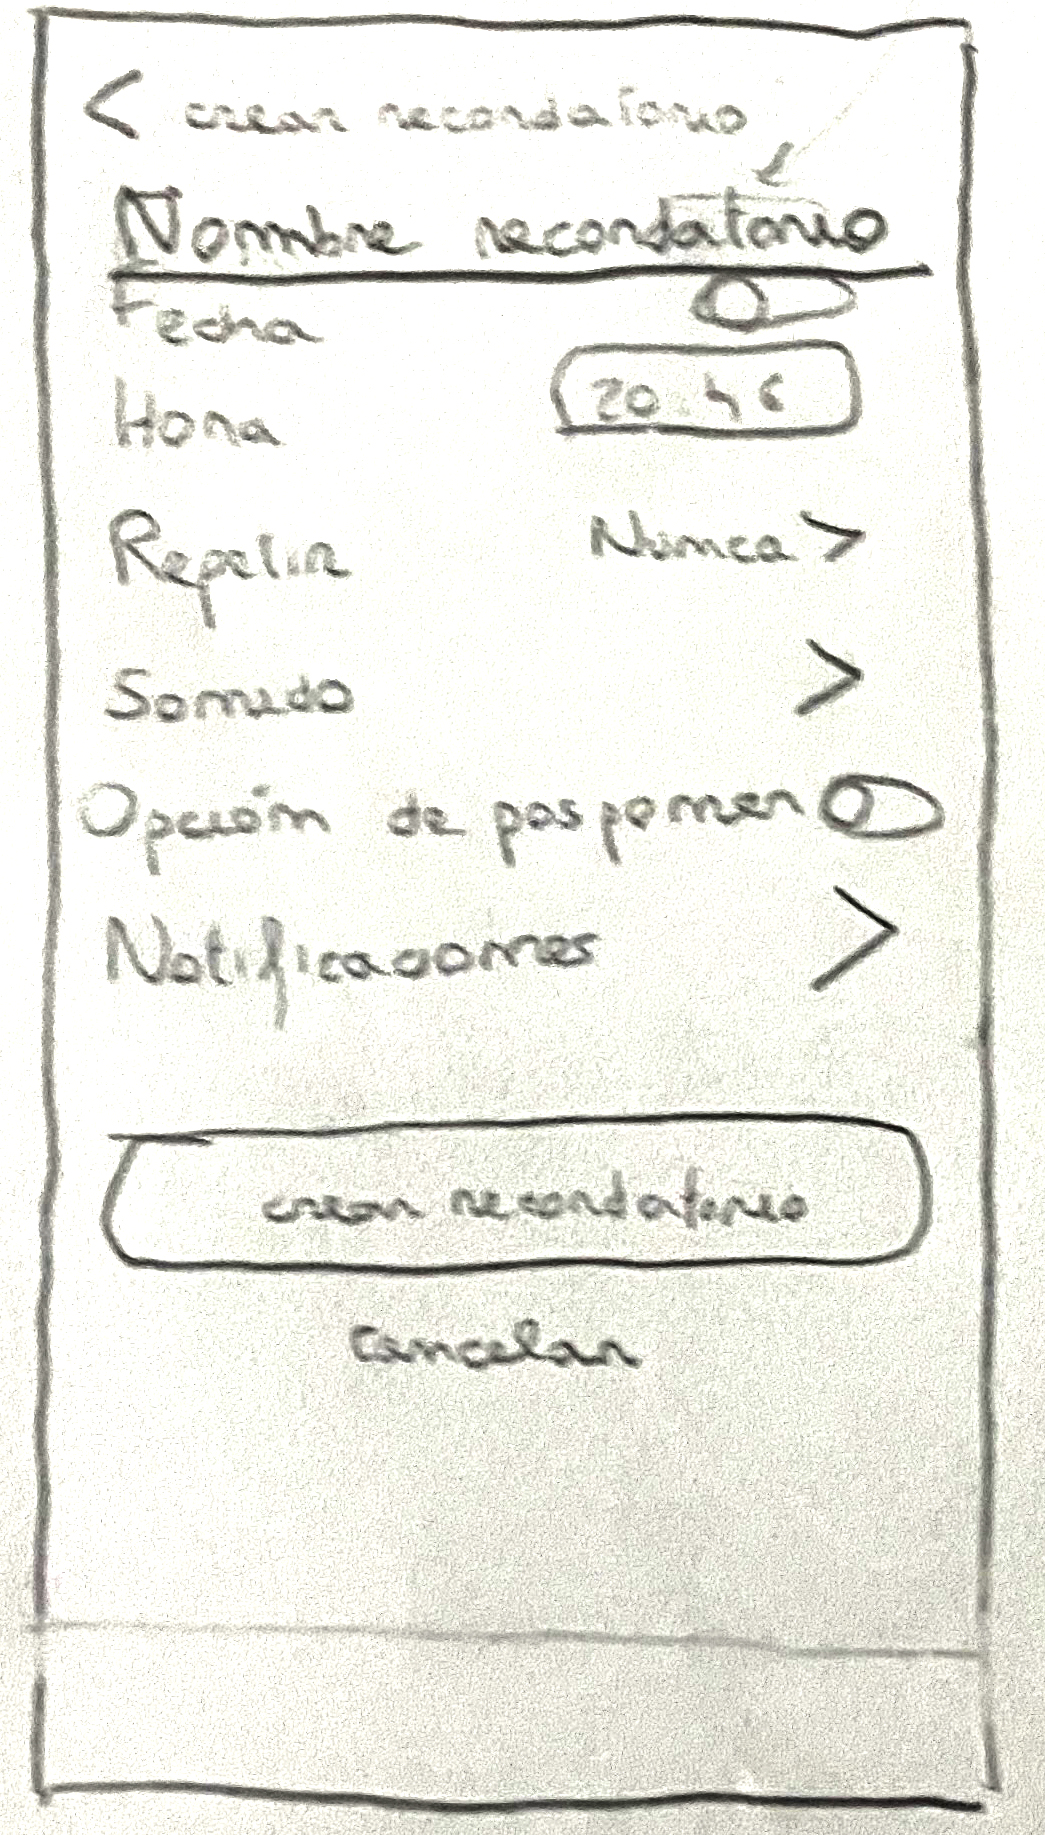 < crear recordatorio
Nombre recordatorio
Fecha
Hora 20:46
Repetir Nunca >
Sonido >
Opción de posponer
Notificaciones >
crear recordatorio
cancelar